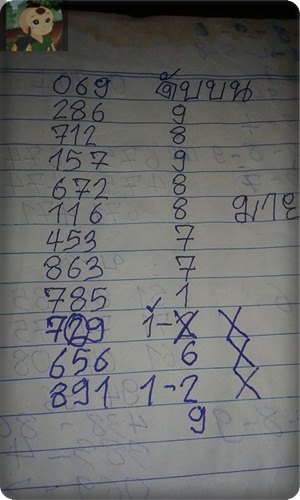 069 ดับบน
286 9
712 8
157 9
672 8
116 8 มาระ
453 7
863 7
785 1
729 1-2 X
656 6 X
891 1-2 X
9